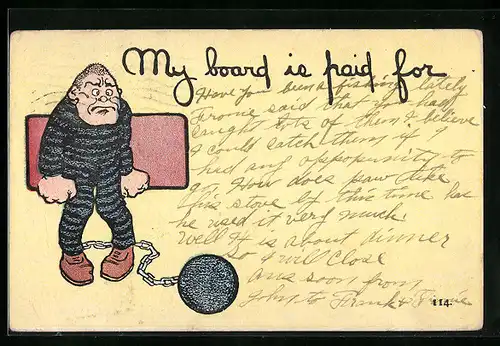 My board is paid for
Have you been a fishing lately
Frome said that you had
caught lots of them I believe
I could catch them if I
had any oppopunity to
How does paw like
his stove by this time has
he used it very much
Well it is about dinner
So I will close
ans soon from
John to Frank &
114.